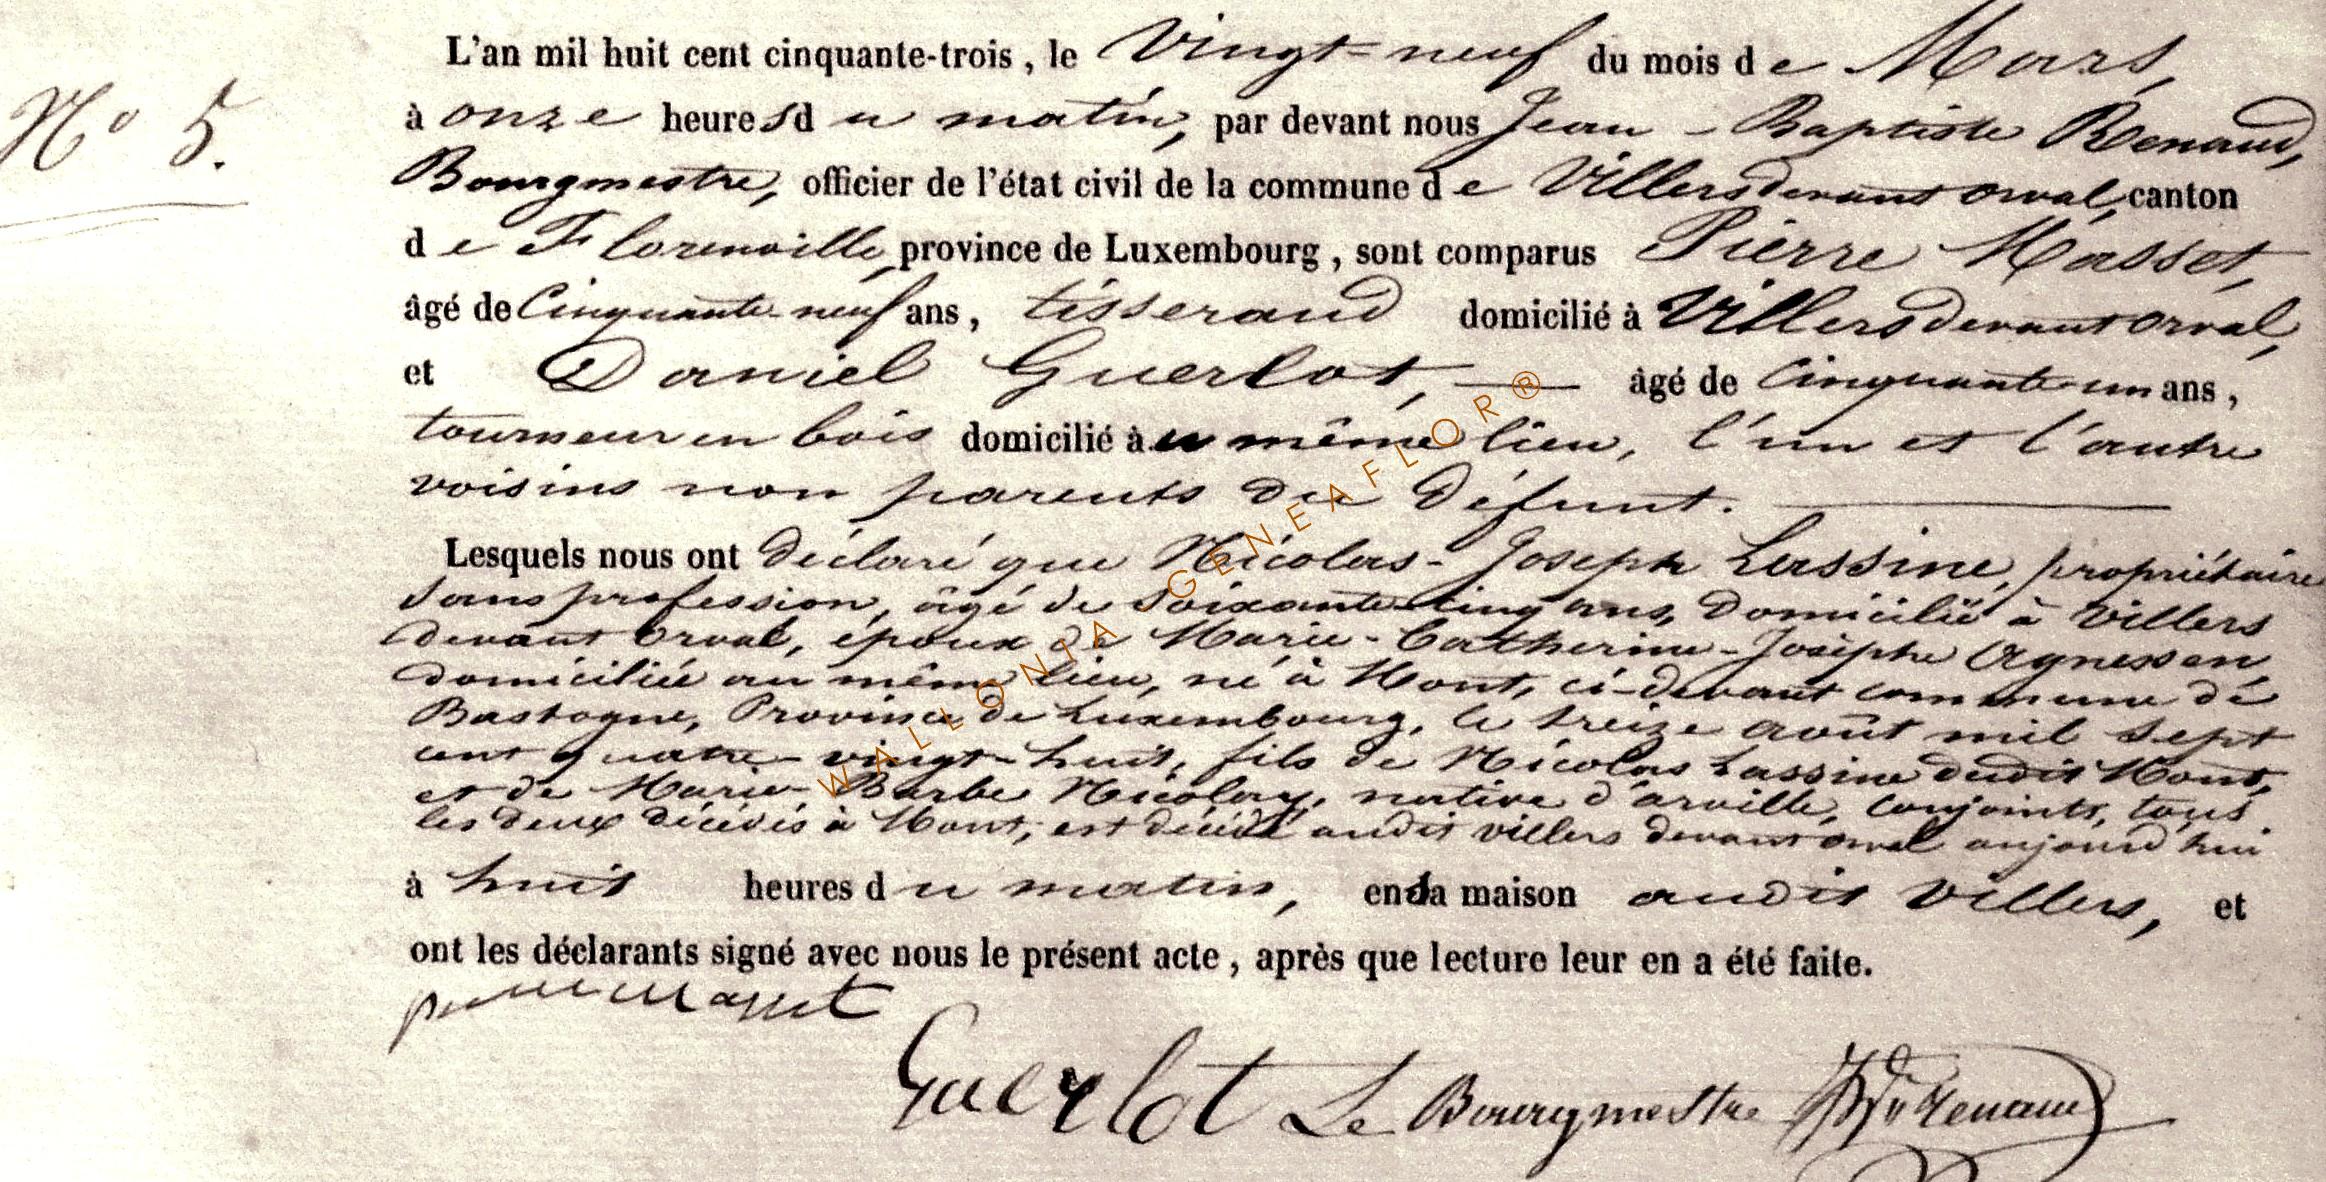 L'an mil huit cent cinquante-trois, le Vingt-neuf du mois de Mars,
N° 5.
à onze heures du matin, par devant nous Jean-Baptiste Renaud,
Bourgmestre, officier de l'état civil de la commune de Villersdevant orval, canton
de Florenville, province de Luxembourg, sont comparus Pierre Masset,
âgé de Cinquante-neuf ans, tisserand domicilié à Villersdevant orval,
et Daniel Guerlot, — âgé de Cinquante-un ans,
tourneur en bois domicilié au même lieu, l'un et l'autre
voisins non parents du Défunt. —
Lesquels nous ont déclaré que Nicolas-Joseph Lassine, propriétaire
sans profession, âgé de soixante-cinq ans, domicilié à Villers
devant orval, époux de Marie-Catherine-Josèphe Agnessen,
domiciliée au même lieu, né à Mont, ci-devant commune de
Bastogne, Province de Luxembourg, le treize août mil sept
cent quatre-vingt-huit, fils de Nicolas Lassine dudit Mont,
et de Marie-Barbe Nicolay, native d'arville, conjoints, tous
les deux décédés à Mont, est décédé audit villers devant orval aujourd'hui
à huit heures du matin, en sa maison audit Villers, et
ont les déclarants signé avec nous le présent acte, après que lecture leur en a été faite.
pierre Masset
Guerlot Le Bourgmestre Renaud
WALLONIA GENEAFLOR®